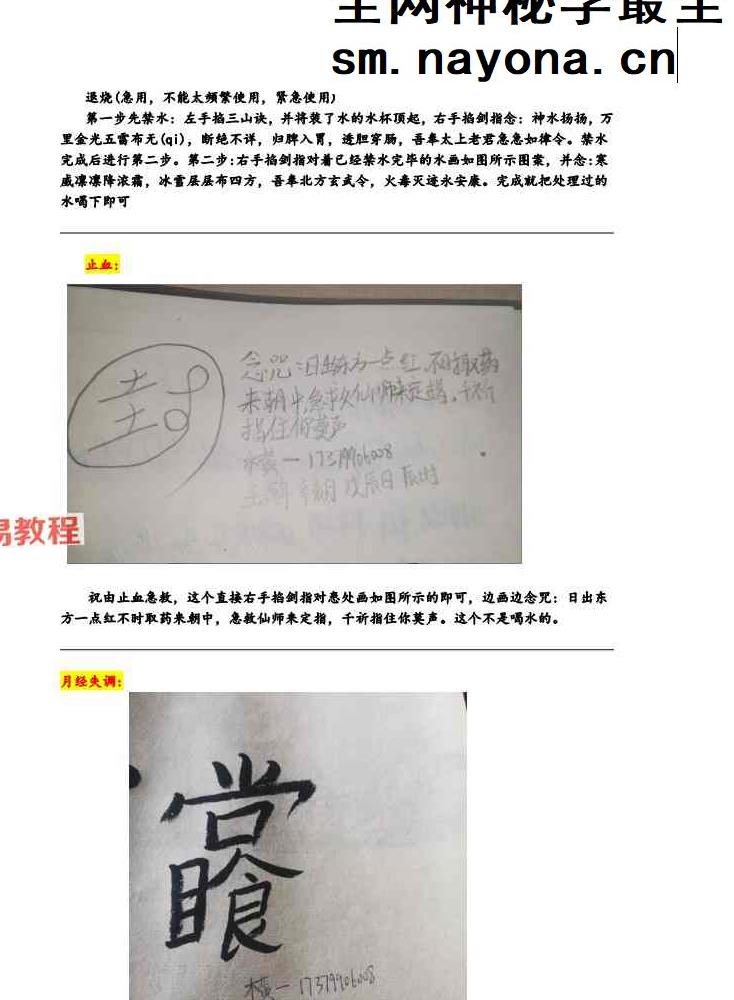 全网神秘学最全
sm.nayona.cn
退烧(急用，不能太频繁使用，紧急使用)
第一步先禁水：左手掐三山诀，并将装了水的水杯顶起，右手掐剑指念：神水扬扬，万
里金光五雷布无(qi)，断绝不详，归脾入胃，透胆穿肠，吾奉太上老君急急如律令。禁水
完成后进行第二步。第二步:右手掐剑指对着已经禁水完毕的水画如图所示图案，并念:寒
威凛凛降浓霜，冰雪层层布四方，吾奉北方玄武令，火毒灭迹永安康。完成就把处理过的
水喝下即可
止血：
封
念咒：日出东方一点红，不时取药
来朝中，急救仙师来定指，千祈
指住你莫声
17379906008
戊辰日 辰时
易教程
祝由止血急救，这个直接右手掐剑指对患处画如图所示的即可，边画边念咒：日出东
方一点红不时取药来朝中，急救仙师来定指，千祈指住你莫声。这个不是喝水的。
月经失调：
17379906008